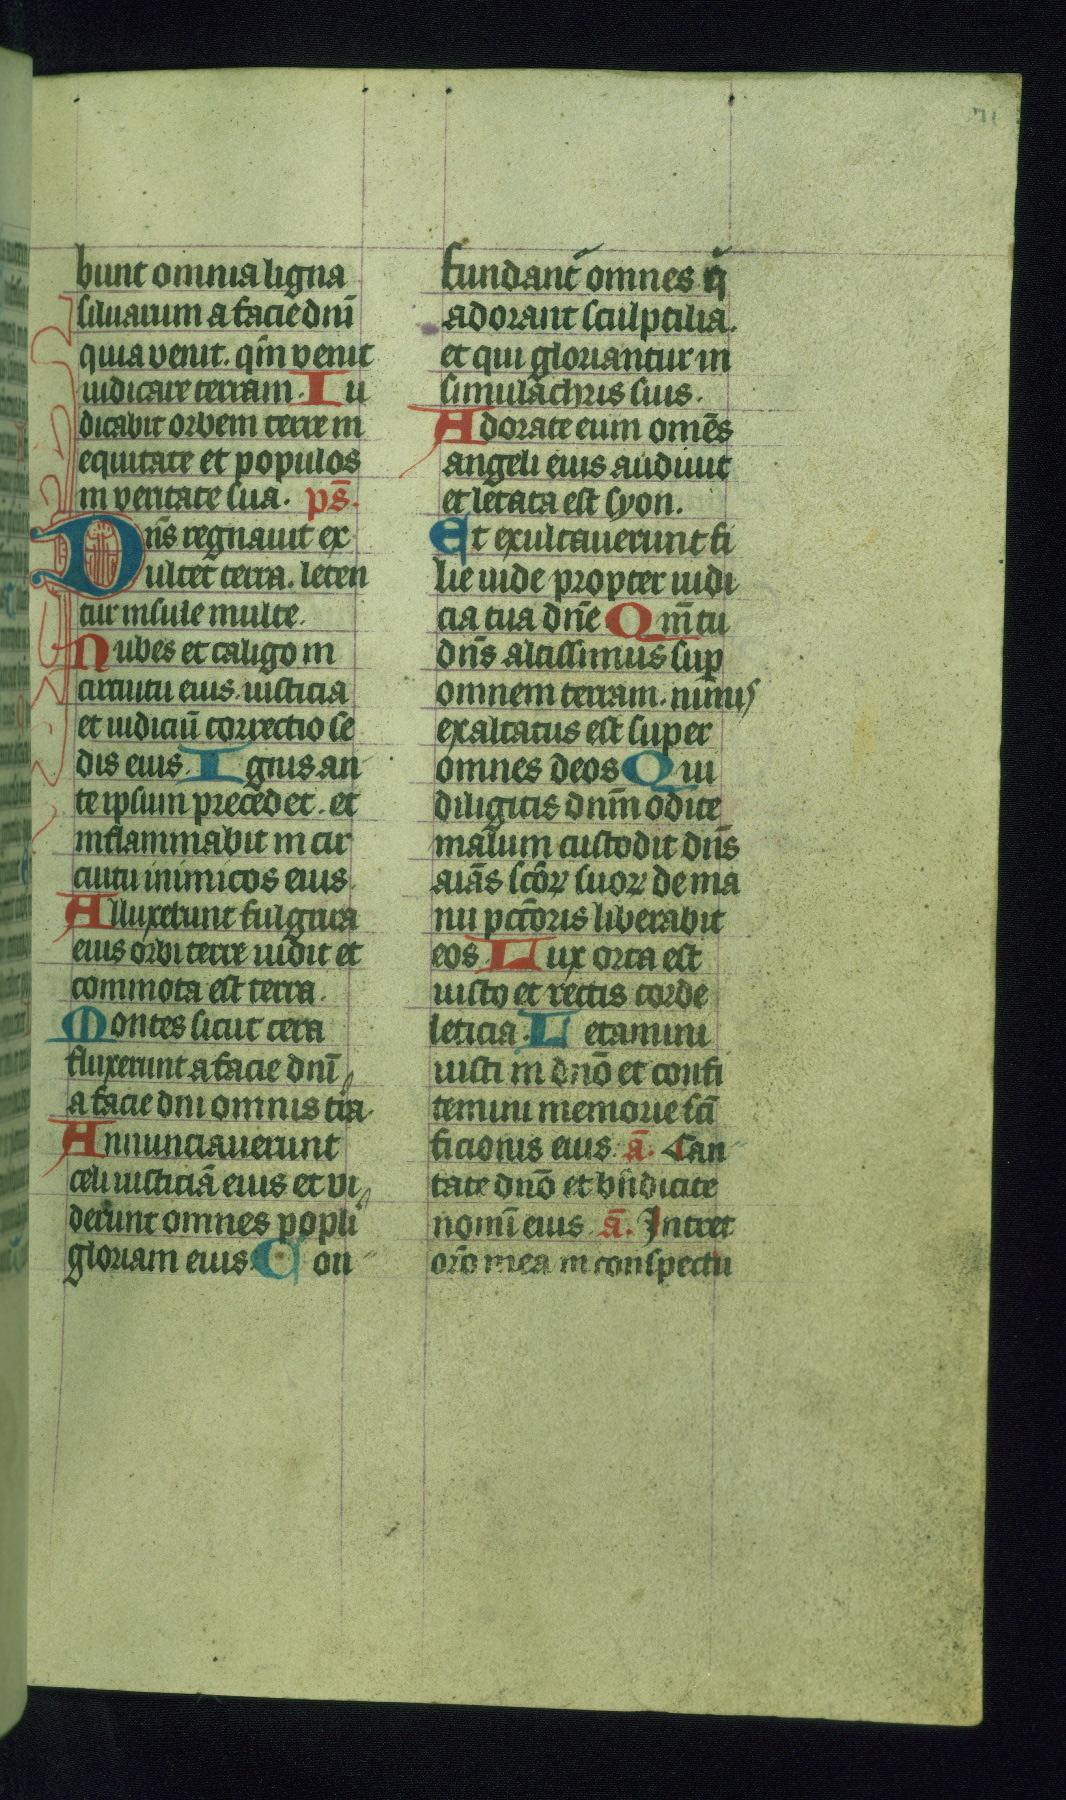 71
bunt omnia ligna
siluarum a facie dnī
quia venit. qm̄ venit
iudicare terram. Iu
dicabit orbem terre in
equitate et populos
in veritate sua. ps̄.
Dn̄s regnauit ex
ultet terra. leten
tur insule multe.
Nubes et caligo in
circuitu eius. iusticia
et iudiciū correctio se
dis eius. Ignis an
te ipsum precedet. et
inflammabit in cir
cuitu inimicos eius.
Alluxerunt fulgura
eius orbi terre uidit et
commota est terra.
Montes sicut cera
fluxerunt a facie dnī
a facie dni omnis tr̄a.
Annunciauerunt
celi iusticiā eius et vi
derunt omnes popli
gloriam eius. Con
fundant̄ omnes q̄
adorant sculptilia.
et qui gloriantur in
simulachris suis.
Adorate eum omēs
angeli eius audiuit
et letata est syon.
Et exultauerunt fi
lie iude propter iudi
cia tua dn̄e Qm̄ tu
dn̄s altissimus sup̄
omnem terram. nimis
exaltatus est super
omnes deos Qui
diligitis dnm̄ odite
malum custodit dn̄s
aīas scōꝝ suoꝝ de ma
nu pctōris liberabit
eos. Lux orta est
iusto et rectis corde
leticia. Letamini
iusti in dnō et confi
temini memorie scī
ficionis eius. ā. Can
tate dnō et bn̄dicite
nomī eius. ā. Intret
orō mea in conspectu